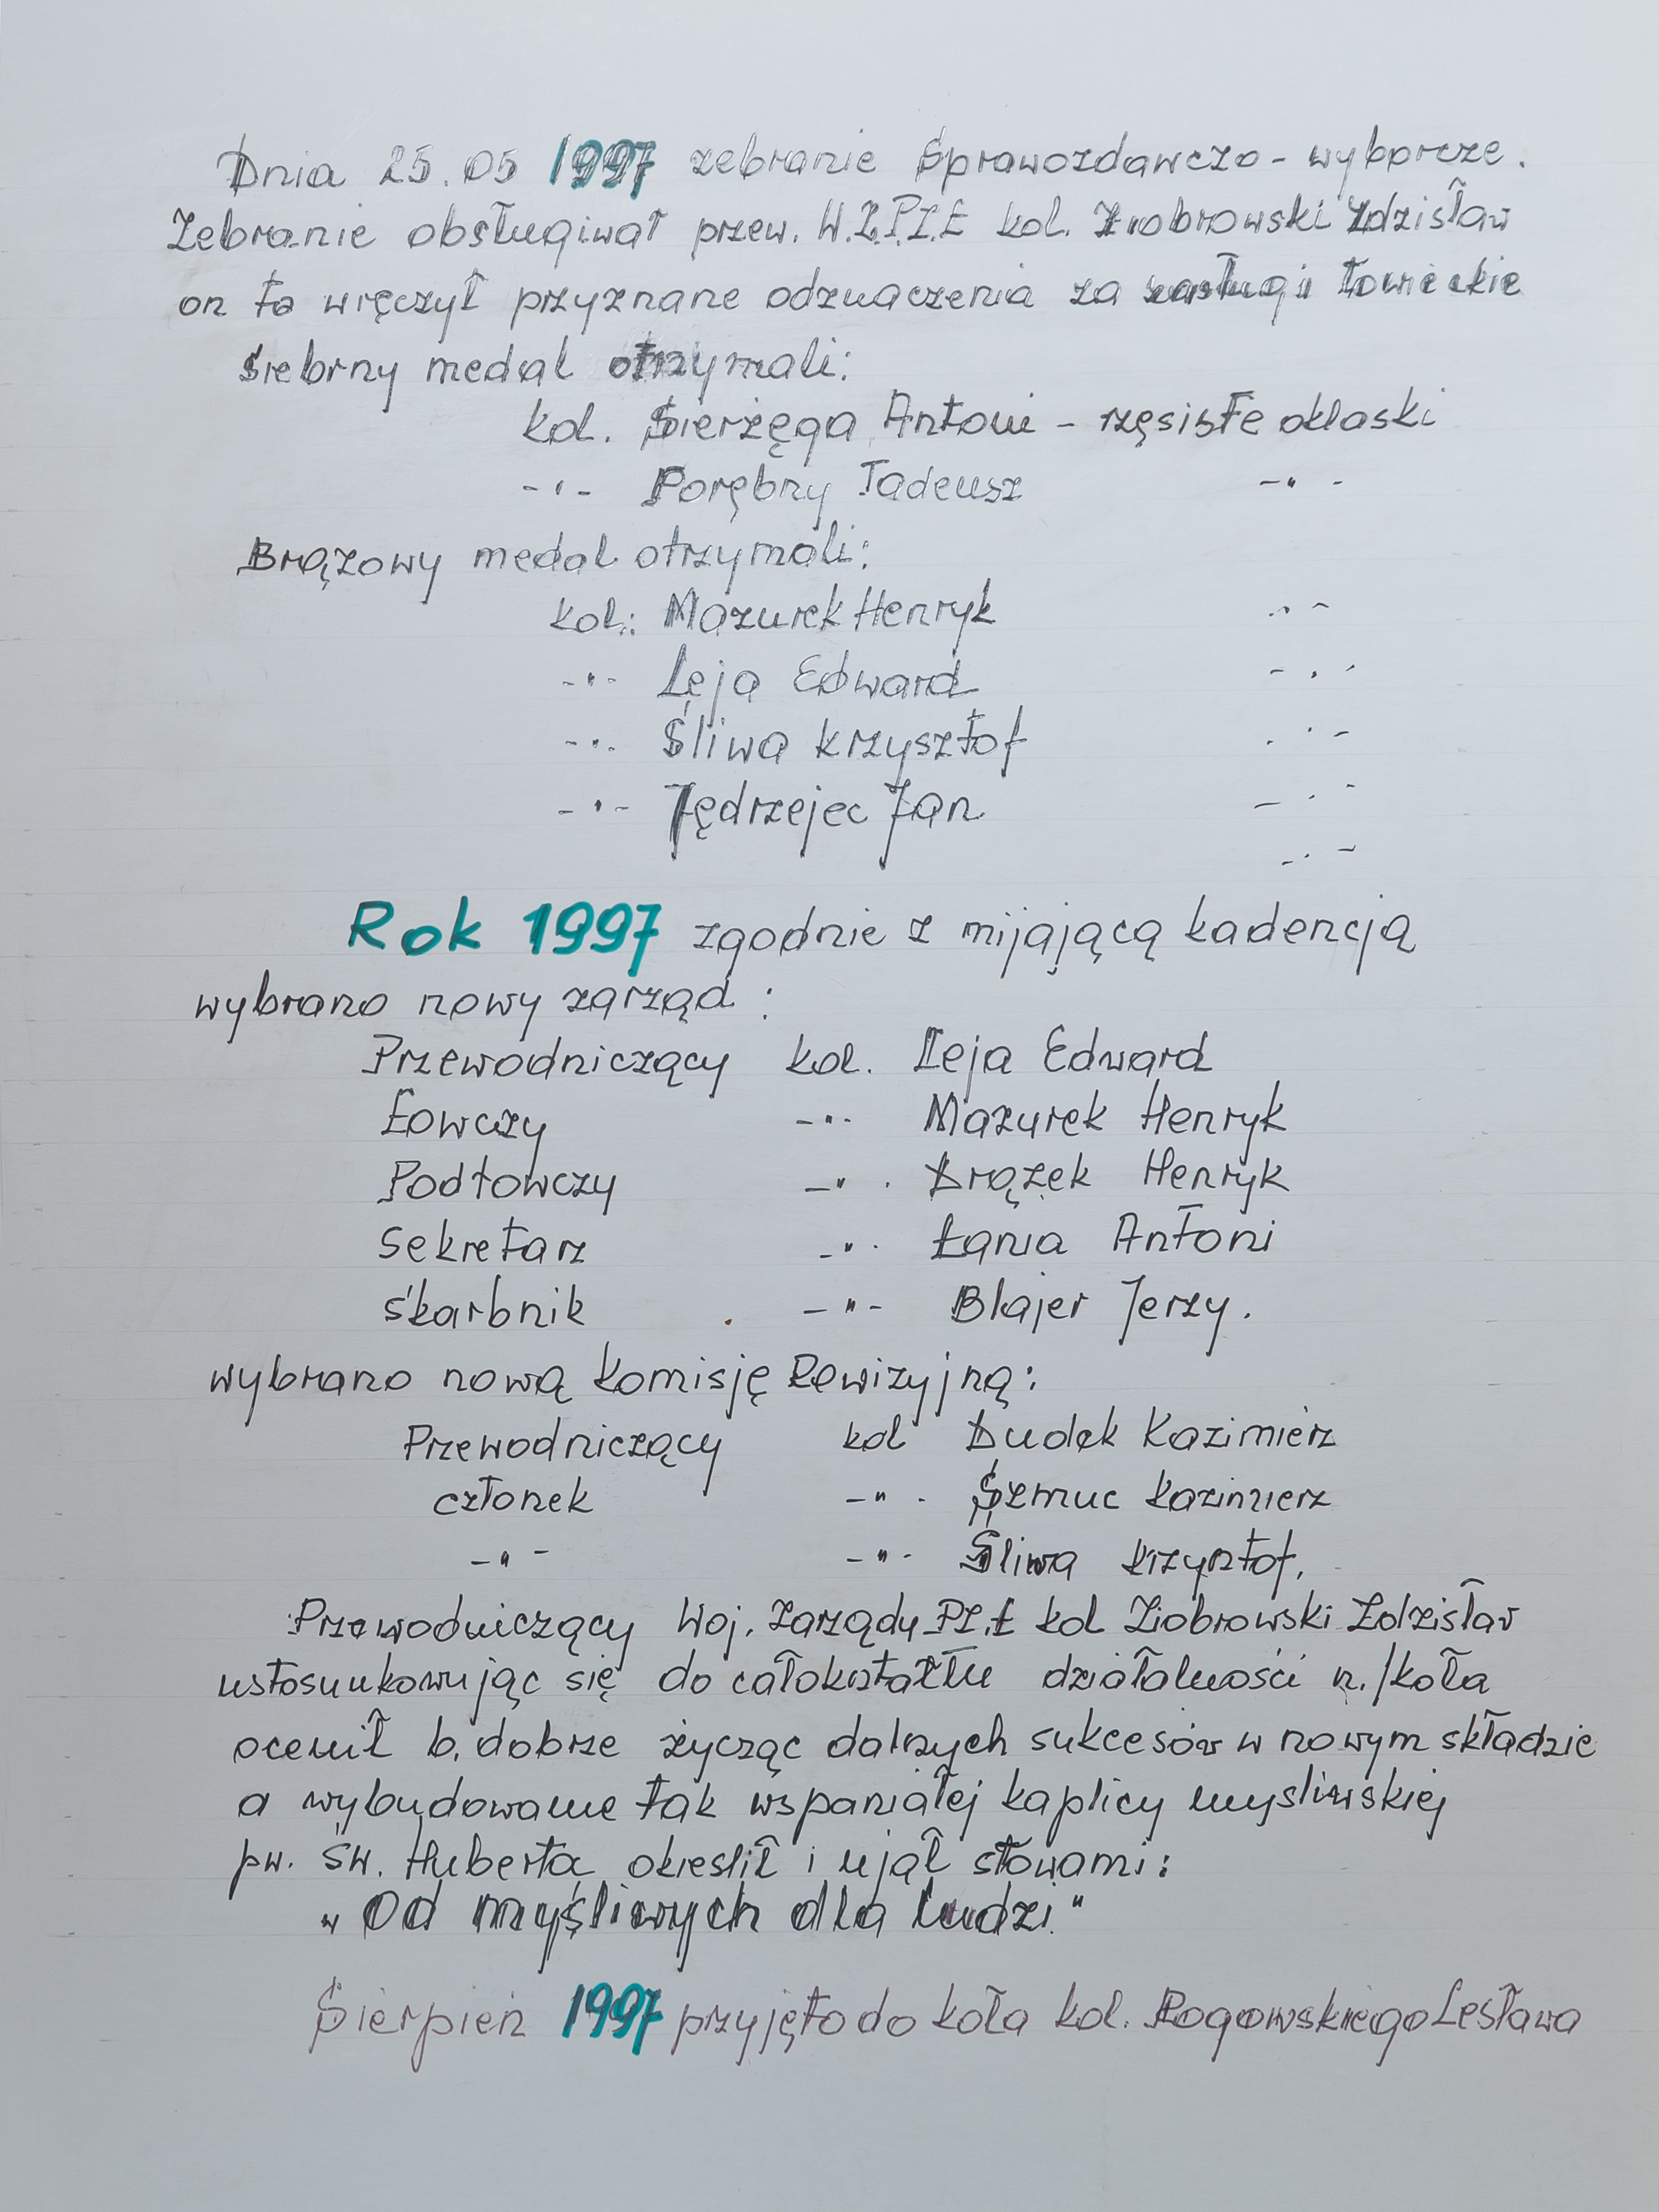 Dnia 25.05 1997 zebranie Sprawozdawczo - wyborcze.
Zebranie obsługiwał przew. W.Z.P.Z.Ł kol. Ziobrowski Zdzisław
on to wręczył przyznane odznaczenia za zasługi łowieckie
Srebrny medal otrzymali:
kol. Sierżęga Antoni - rzęsiste oklaski
-"- Porębny Tadeusz -"-
Brązowy medal otrzymali:
kol.: Mazurek Henryk -"-
-"- Leja Edward -"-
-"- Śliwa Krzysztof -"-
-"- Jędrzejec Jan -"-
-"-
Rok 1997 zgodnie z mijającą kadencją
wybrano nowy zarząd:
Przewodniczący kol. Leja Edward
Łowczy -"- Mazurek Henryk
Podłowczy -"- Drążek Henryk
Sekretarz -"- Łania Antoni
Skarbnik -"- Blajer Jerzy.
wybrano nową Komisję Rewizyjną:
Przewodniczący kol Dudek Kazimierz
członek -"- Szmuc Kazimierz
-"- -"- Śliwa Krzysztof.
Przewodniczący Woj. Zarządu PZ.Ł kol Ziobrowski Zdzisław
ustosunkowując się do całokształtu działalności n./koła
ocenił b. dobrze życząc dalszych sukcesów w nowym składzie
a wybudowanie tak wspaniałej kaplicy myśliwskiej
pw. św. Huberta określił i ujął słowami:
„Od myśliwych dla ludzi"
Sierpień 1997 przyjęto do koła kol. Rogowskiego Lesława